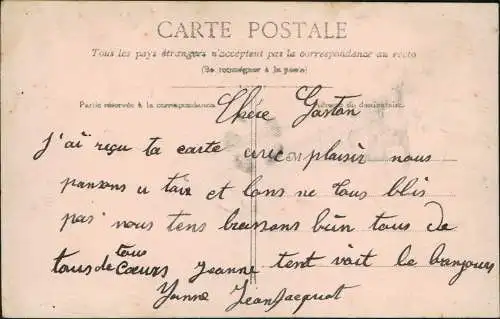 CARTE POSTALE
Tous les pays étrangers n'acceptent pas la correspondance au recto
(Se renseigner à la poste)
Partie réservée à la correspondance Adresse du destinataire
Chére Gaston
j'ai reçu ta carte avec plaisir nous
pansons a toix et lons ne tous blis
pas nous tens brassons bùn tous de
tous
tous de Cœurs Jeanne tent voit le banjours
Yonne Jeanjacquot